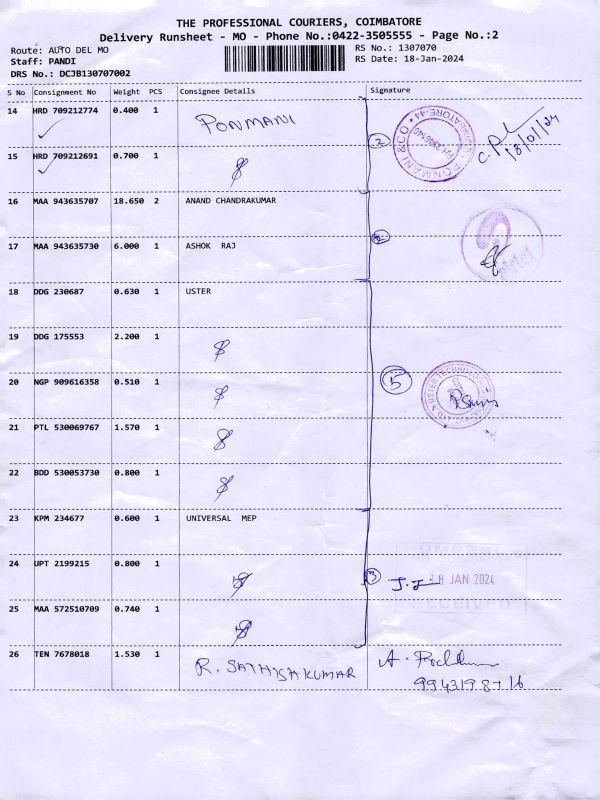 THE PROFESSIONAL COURIERS, COIMBATORE
Delivery Runsheet - MO - Phone No.:0422-3505555 - Page No.:2
Route: AUTO DEL MO
RS No.: 1307070
Staff: PANDI
RS Date: 18-Jan-2024
DRS No.: DCJB130707002
S No Consignment No Weight PCS Consignee Details Signature
14 HRD 709212774 0.400 1 PONMANI
15 HRD 709212691 0.700 1
2
PONMANI & CO
18/01/24
16 MAA 943635707 18.650 2 ANAND CHANDRAKUMAR
17 MAA 943635730 6.000 1 ASHOK RAJ
2
airtel
18 DDG 230687 0.630 1 USTER
19 DDG 175553 2.200 1
20 NGP 909616358 0.510 1
5
USTER TECHNOLOGIES
21 PTL 530069767 1.570 1
22 BDD 530053730 0.800 1
23 KPM 234677 0.600 1 UNIVERSAL MEP
24 UPT 2199215 0.800 1
3
18 JAN 2024
RECEIVED
25 MAA 572510709 0.740 1
26 TEN 7678018 1.530 1 R. SATHISHKUMAR
9943198716